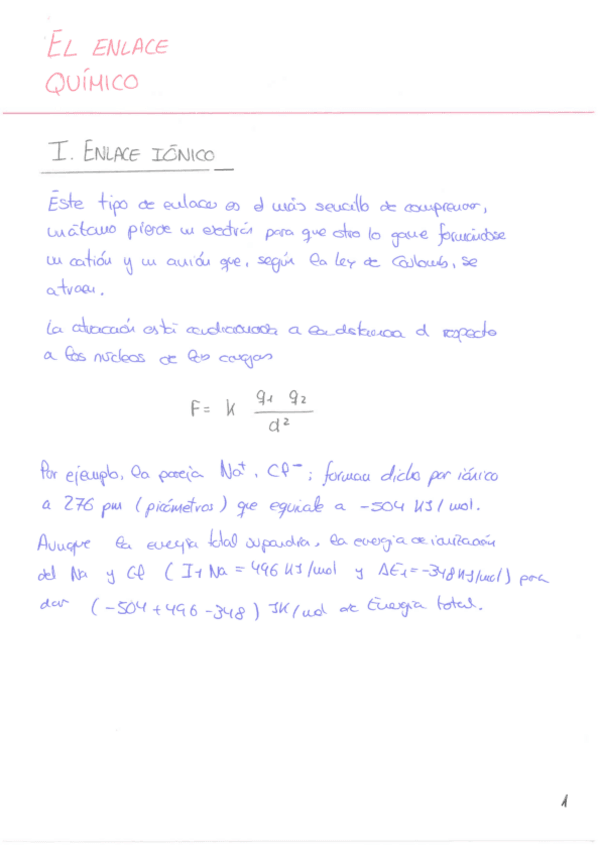 EL ENLACE
QUÍMICO
I. ENLACE IÓNICO
Este tipo de enlace es el más sencillo de comprender,
un átomo pierde un electrón para que otro lo gane formándose
un catión y un anión que, según la ley de Coulomb, se
atraen.
La atracción está condicionada a la distancia d respecto
a los núcleos de las cargas
F = k q1 q2 / d²
Por ejemplo, la pareja Na⁺, Cl⁻; forman dicho par iónico
a 276 pm (picómetros) que equivale a -504 KJ/mol.
Aunque la energía total supondría, la energía de ionización
del Na y Cl (I1 Na = 496 KJ/mol y ΔE1 = -348 KJ/mol) para
dar (-504 + 496 - 348) JK/mol de Energía total.
1